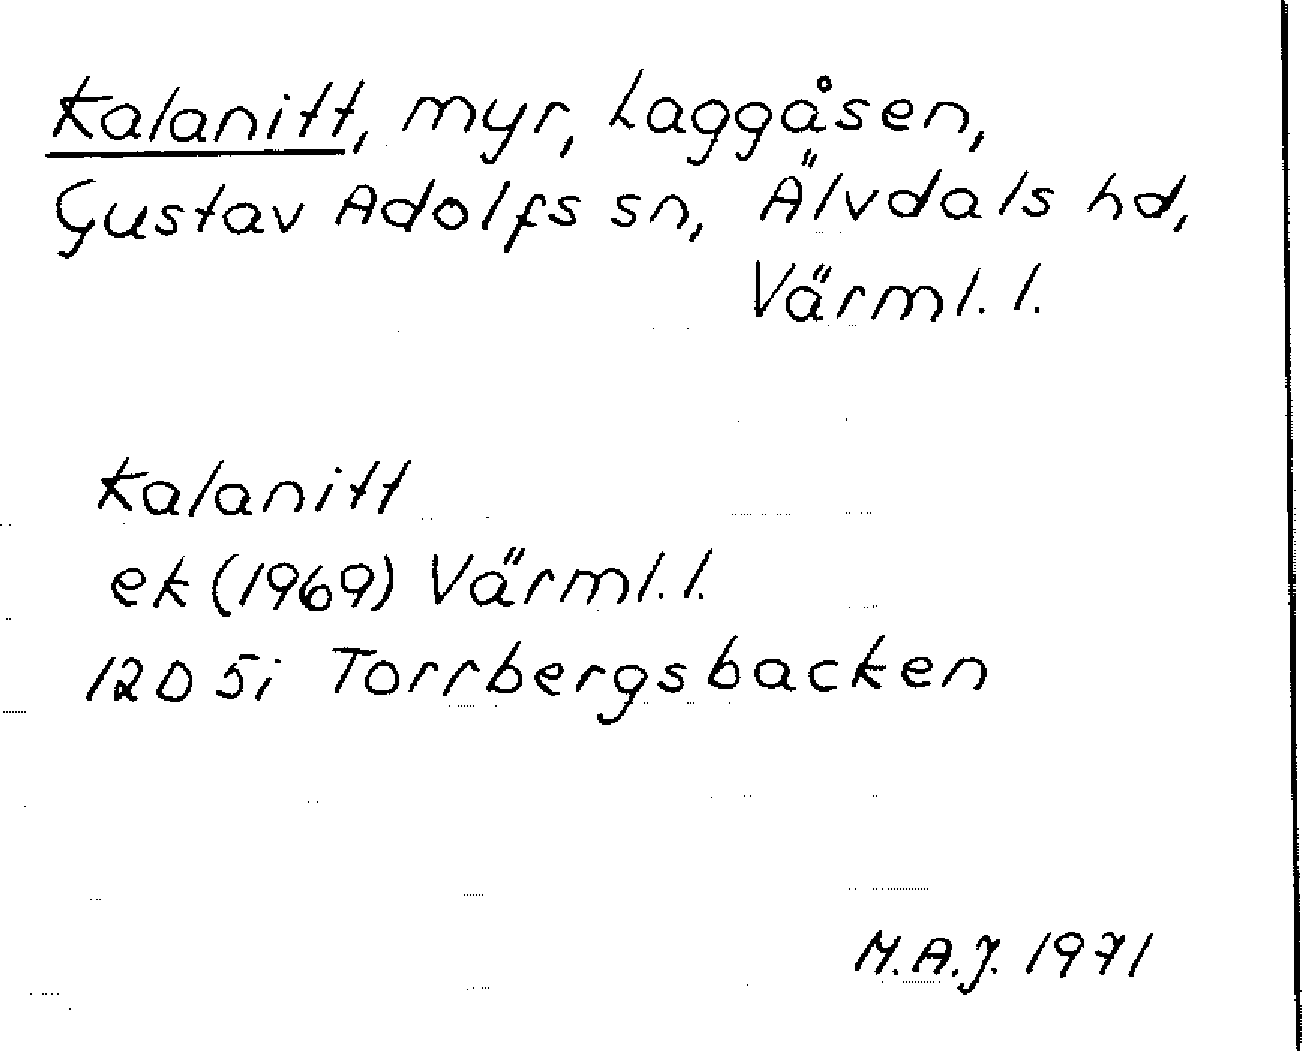 Kalanitt, myr, Laggåsen,
Gustav Adolfs sn, Älvdals hd,
Värml. l.
Kalanitt
ek (1969) Värml. l.
12D 5i Torrbergsbacken
M.A.J. 1971